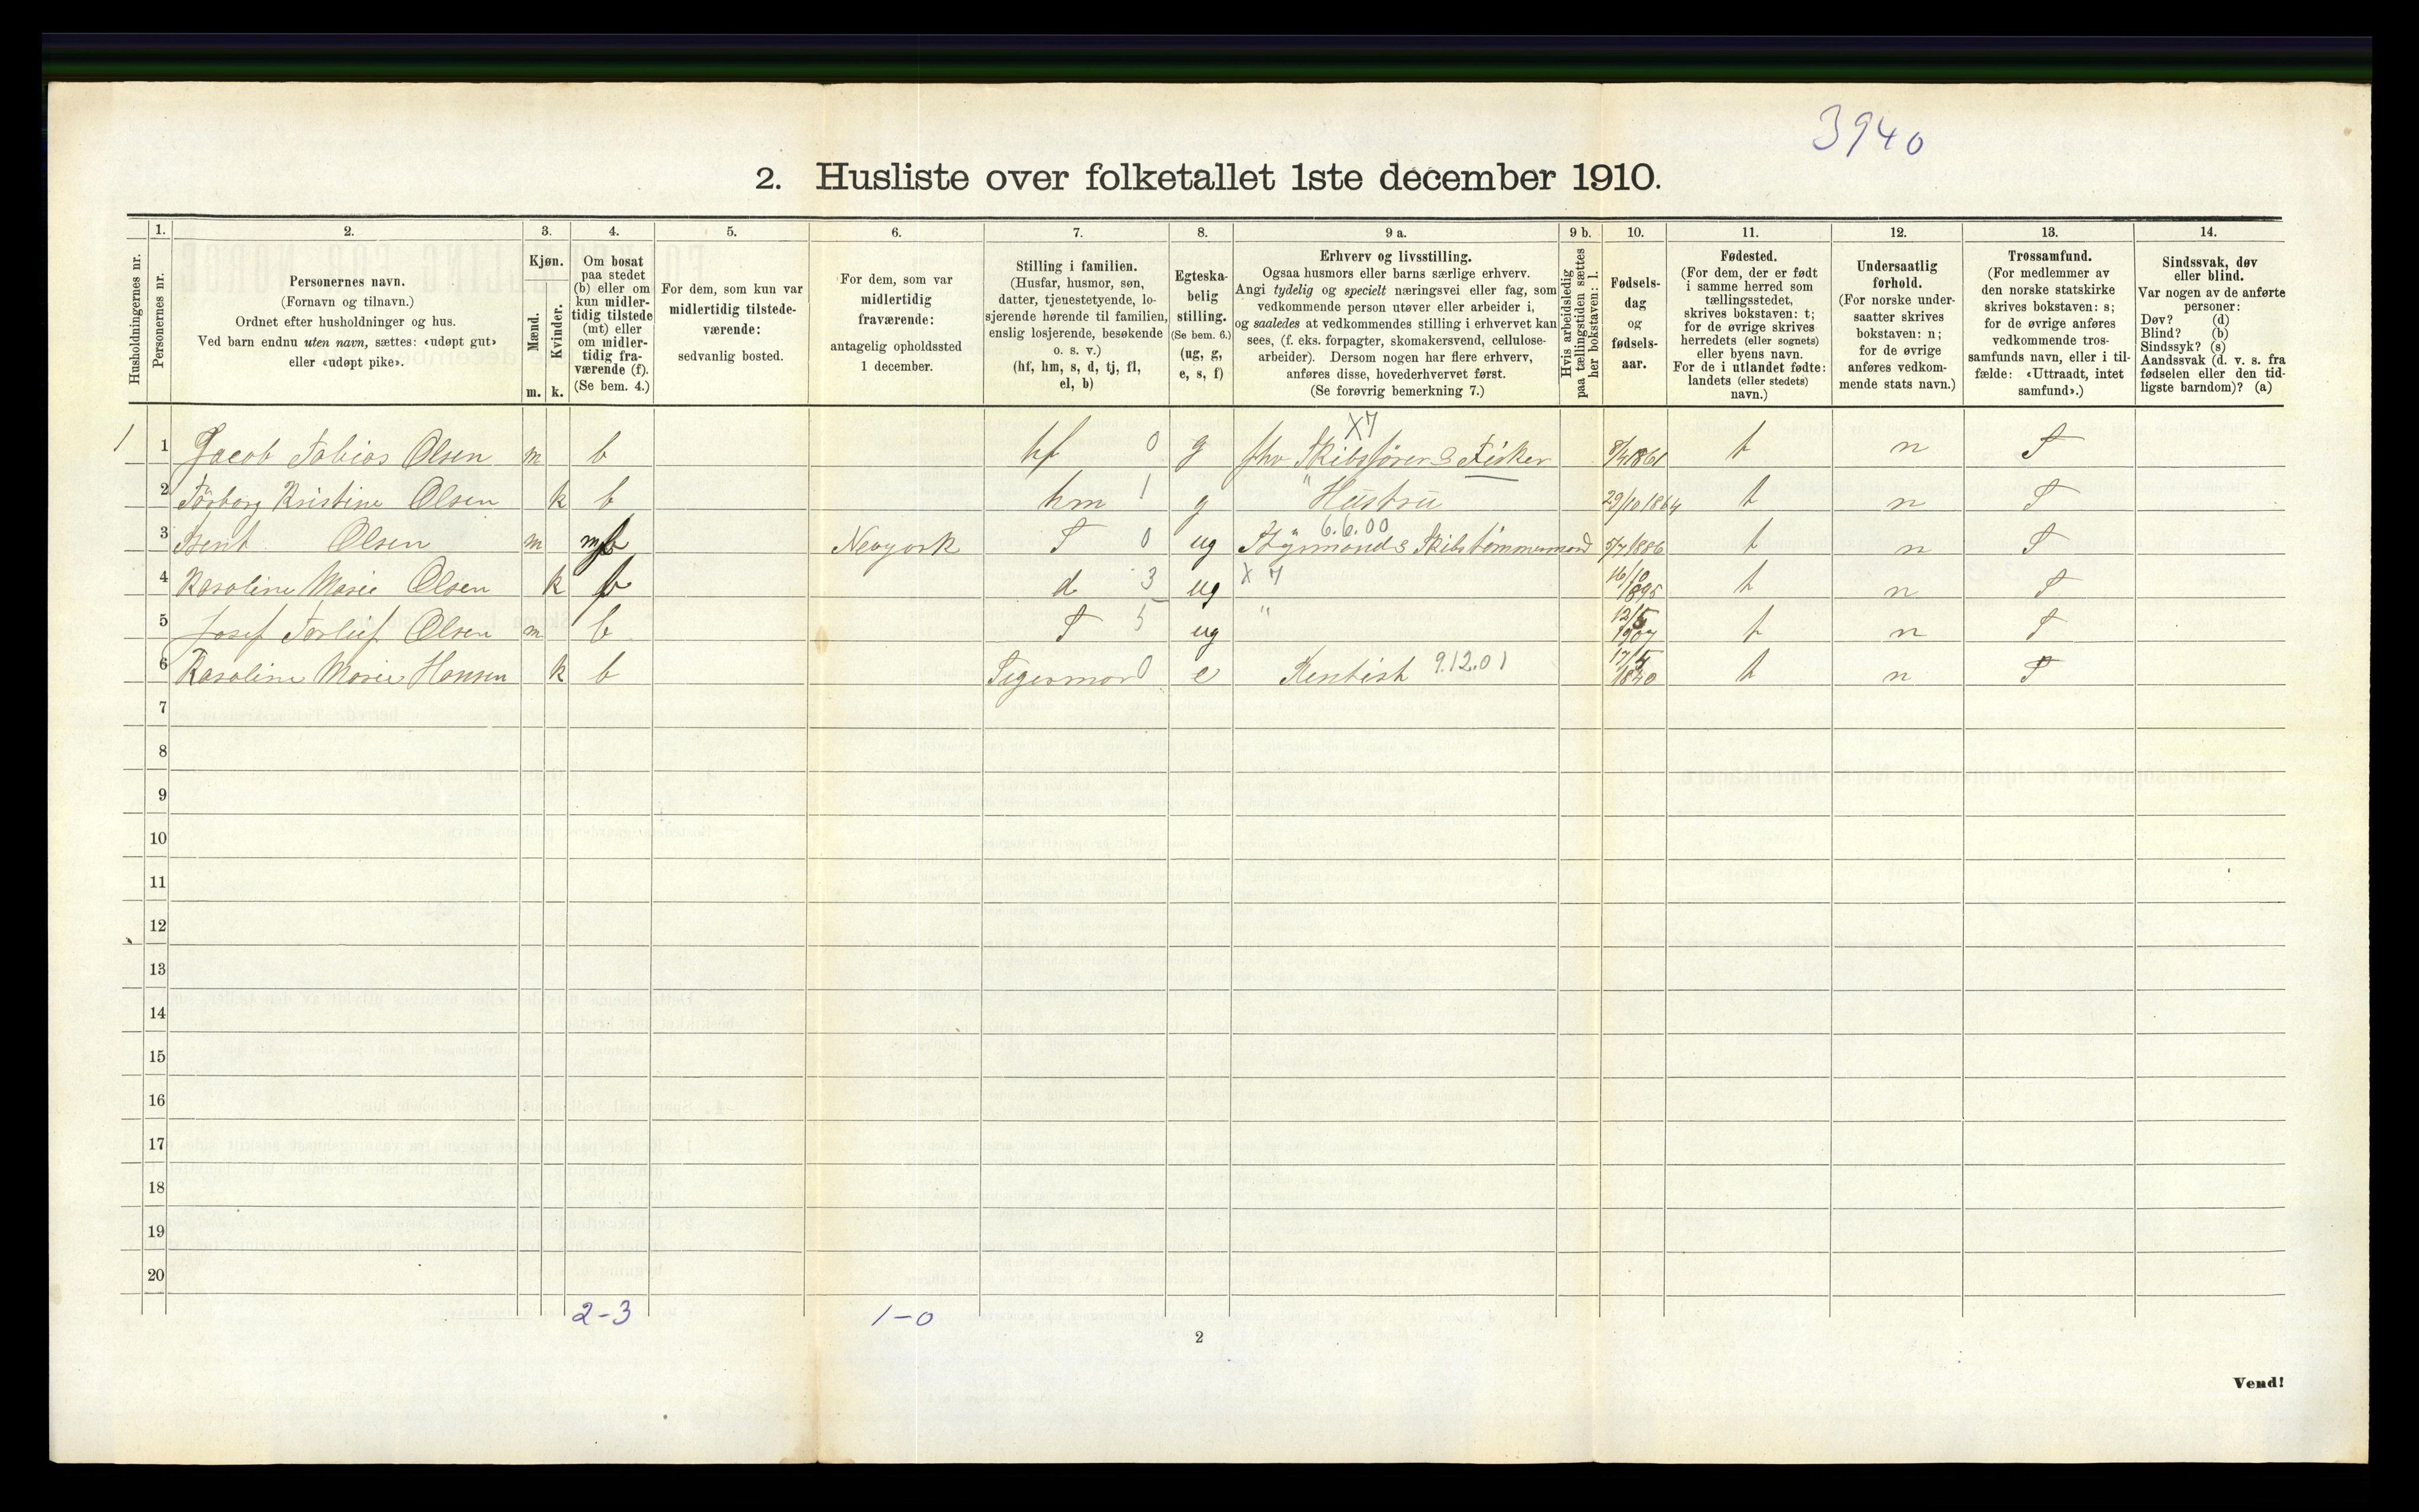 3940
2. Husliste over folketallet 1ste december 1910.
1. 2. 3. 4. 5. 6. 7. 8. 9 a. 9 b. 10. 11. 12. 13. 14.
Husholdningernes nr.
Personernes nr.
Personernes navn.
(Fornavn og tilnavn.)
Ordnet efter husholdninger og hus.
Ved barn endnu uten navn, sættes: «udøpt gut»
eller «udøpt pike».
Kjøn.
Mænd.
Kvinder.
m. k.
Om bosat
paa stedet
(b) eller om
kun midler-
tidig tilstede
(mt) eller
om midler-
tidig fra-
værende (f).
(Se bem. 4.)
For dem, som kun var
midlertidig tilstede-
værende:
sedvanlig bosted.
For dem, som var
midlertidig
fraværende:
antagelig opholdssted
1 december.
Stilling i familien.
(Husfar, husmor, søn,
datter, tjenestetyende, lo-
sjerende hørende til familien,
enslig losjerende, besøkende
o. s. v.)
(hf, hm, s, d, tj, fl,
el, b)
Egteska-
belig
stilling.
(Se bem. 6.)
(ug, g,
e, s, f)
Erhverv og livsstilling.
Ogsaa husmors eller barns særlige erhverv.
Angi tydelig og specielt næringsvei eller fag, som
vedkommende person utøver eller arbeider i,
og saaledes at vedkommendes stilling i erhvervet kan
sees, (f. eks. forpagter, skomakersvend, cellulose-
arbeider). Dersom nogen har flere erhverv,
anføres disse, hovederhvervet først.
(Se forøvrig bemerkning 7.)
Hvis arbeidsledig
paa tællingstiden sættes
her bokstaven: l.
Fødsels-
dag
og
fødsels-
aar.
Fødested.
(For dem, der er født
i samme herred som
tællingsstedet,
skrives bokstaven: t;
for de øvrige skrives
herredets (eller sognets)
eller byens navn.
For de i utlandet fødte:
landets (eller stedets)
navn.)
Undersaatlig
forhold.
(For norske under-
saatter skrives
bokstaven: n;
for de øvrige
anføres vedkom-
mende stats navn.)
Trossamfund.
(For medlemmer av
den norske statskirke
skrives bokstaven: s;
for de øvrige anføres
vedkommende tros-
samfunds navn, eller i til-
fælde: «Uttraadt, intet
samfund».)
Sindssvak, døv
eller blind.
Var nogen av de anførte
personer:
Døv? (d)
Blind? (b)
Sindssyk? (s)
Aandssvak (d. v. s. fra
fødselen eller den tid-
ligste barndom)? (a)
X7
1 1 Jacob Tobias Olsen m b hf 0 g fhv Skibsfører & Fisker 8/4 1861 t n S
2 Torborg Kristine Olsen k b hm 1 g " Hustru 29/10 1864 t n S
6.6.00
3 Bent Olsen m Newyork S 0 ug Styrmand & Skibstømmermand 5/7 1886 t n S
4 Karoline Marie Olsen k b d 3 ug X 7 16/10 1895 t n S
5 Josef Torleif Olsen m b S 5 ug " 12/5 1907 t n S
6 Karoline Marie Hansen k b 0 e Rentist 9.12.01 17/5 1840 t n S
7
8
9
10
11
12
13
14
15
16
17
18
19
20
2-3 1-0
2
Vend!